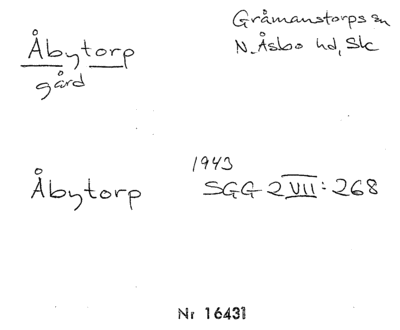 Åbytorp
gård
Gråmanstorps sn
N. Åsbo hd, Sk
Åbytorp
1943
SGG 2 VII: 268
Nr 16431